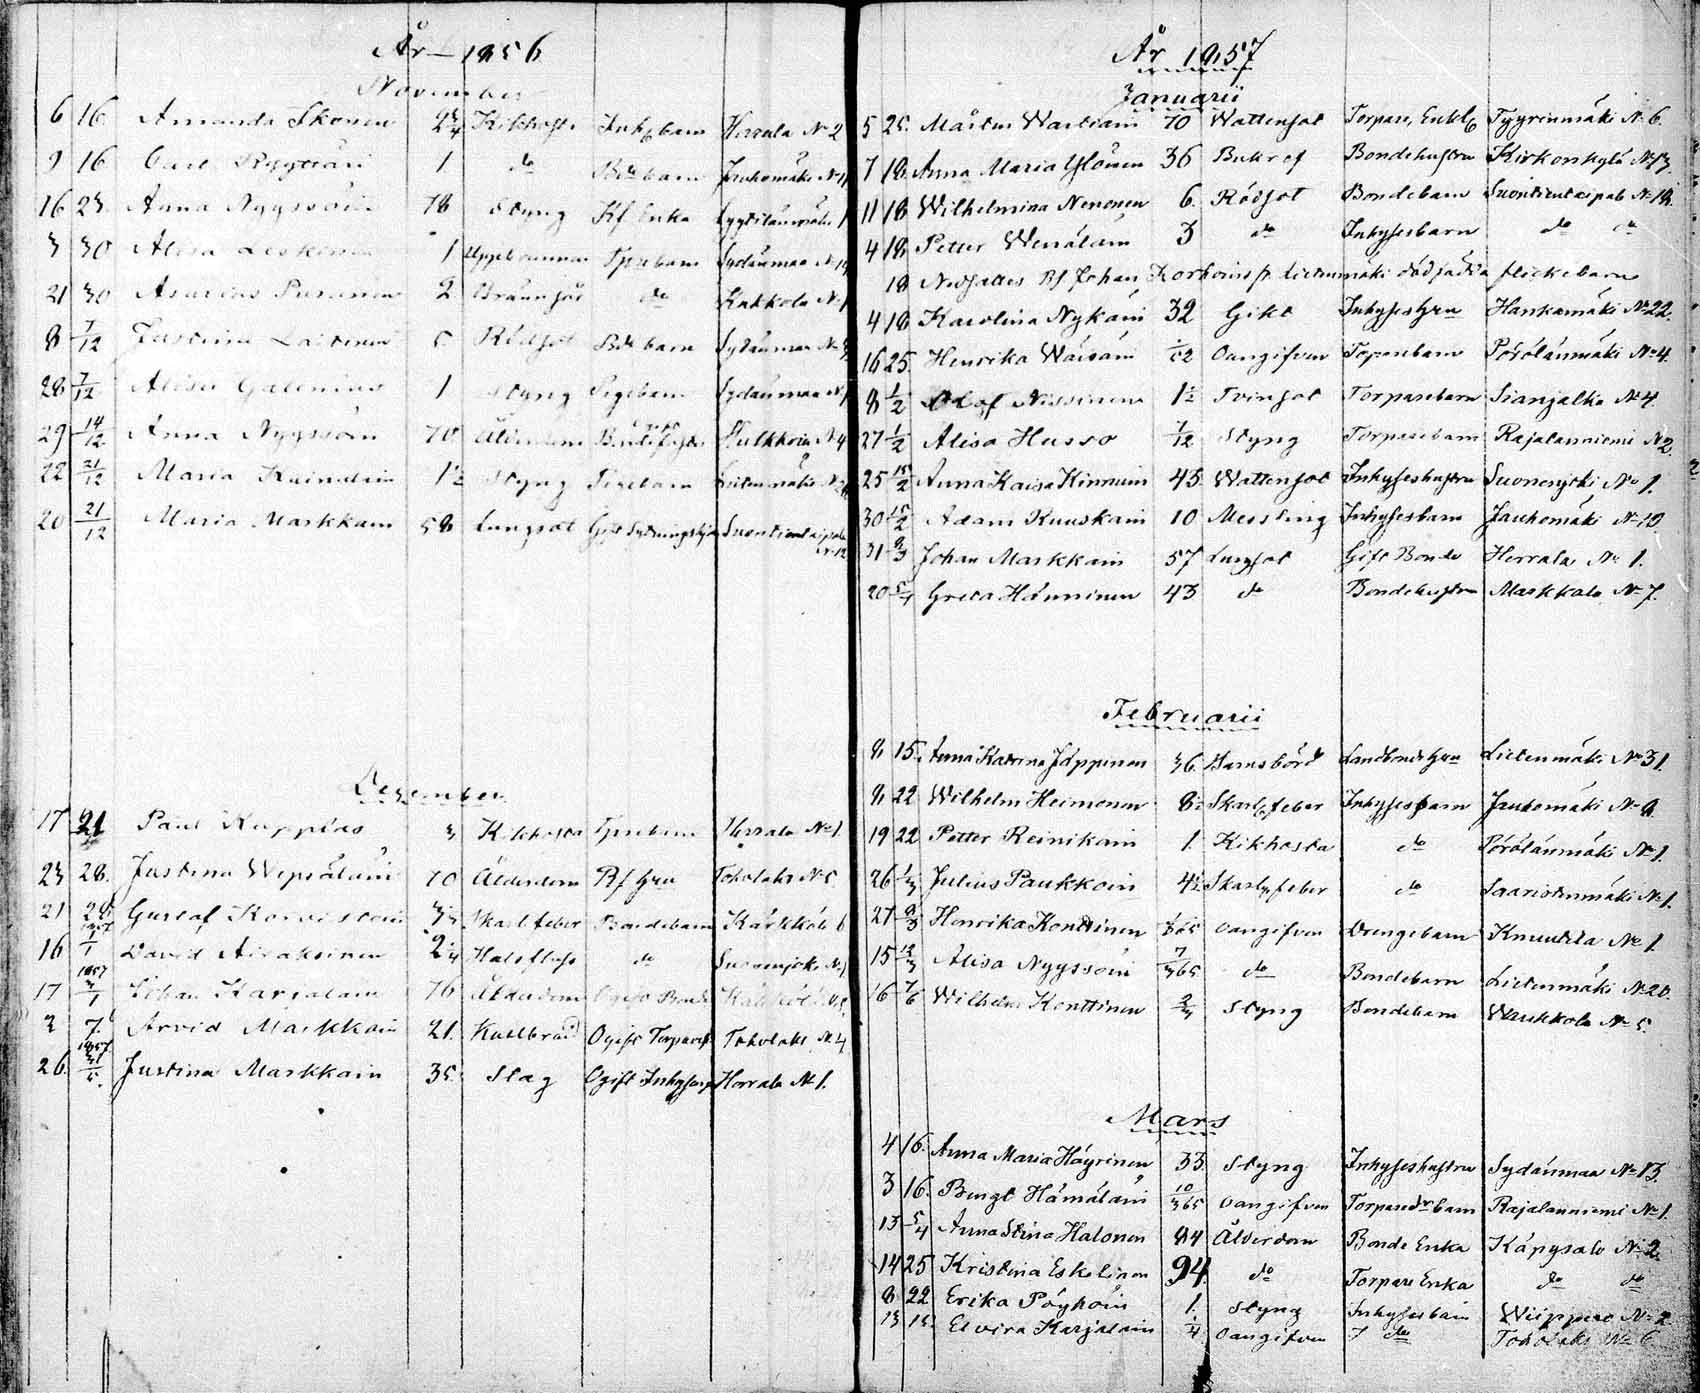 År 1856
November
6 16 Amanda Ikonen 2 3/4 Kikhosta Inh barn Herrala No 2
9 16 Carl 1 do Bde barn Jauhomäki
16 23. Anna Nyyssöin 78 Styng Rf Enka
3 30 Alisa Leskinen 1 barn Sydänmaa No
21 30 Asarias Puranen 2 Brännsår do Kukkola No 1
8 7/12 Justina Laitinen Rödsot Bde barn Sydänmaa No
28 7/12 Alisa Galenius 1 Styng barn Sydänmaa No
29 14/12 Anna Nyyssöin 70 Ålderdom Pulkkoin No 4
22 21/12 Maria Kainulain 1 1/2 Styng barn Lietenmäki No
20 21/12 Maria Markkain 58 Lungsot Gift Suontientaipale
No 12
December
17 21 Paul Kuppias 3 Kikhosta Tprebarn Herrala No 1.
23 28. Justina Wepsäläin 70 Ålderdom Rf hru Toholaks No 5
21 28 Gustaf Korvistoin Skarl feber Bondebarn Kärkkälä 6
16 1857 1/1 David Airaksinen 2 1/4 Halsfluss do Suonenjoki No 1
17 1857 /1 Johan Karjalain 76 Ålderdom Bonde Kärkkälä
2 7. Arvid Markkain 21. Kallbrand Ogift Torpares Toholaks No 4
26. 1857 31/5. Justina Markkain 35. Slag Ogift Inhyses Herrala No 1.
År 1857
Januarii
5 25. Mårten Wartiain 70 Wattensot Torpare, Enkl Tyyrinmäki No 6.
7 18. Anna Maria Ylönen 36 Bukref Bondehustru Kirkonkylä No 13.
11 18 Wilhelmina Nenonen 6. Rödsot Bondebarn Suontientaipale No 18.
4 18 Petter Wenäläin 3 do Inhysesbarn do do
18 Nedsattes Rf Johan Korhoins fr. Lietenmäki dödfödda flickebarn
4 18 Karolina Nykäin 32 Gikt Inhyses hru Hankamäki No 22.
16 25. Henrika Wäisäin 1/12 Oangifven Torparebarn Pörölänmäki No 4.
8 1/2 Olof Nissinen 1 1/2 Tvinsot Torparebarn Sianjalka No 4
27 1/2 Alisa Husso 7/12 Styng Torparebarn Rajalanniemi No 2.
25 15/2 Anna Kaisa Kinnuin 43. Wattensot Inhyseshustru Suonenjoki No 1.
30 15/2 Adam Kuuskain 10 Messling Inhysesbarn Jauhomäki No 19
31 8/3 Johan Markkain 57 Lungsot Gift Bonde Herrala No 1.
20 5/4 Greta Hänninen 43 do Bondehustru Markkala No 7.
Februarii
8 15. Anna Katrina Jäppinen 36. Barnsbörd Landbonde hru Lietenmäki No 31.
8 22 Wilhelm Heimonen 8 1/2 Skarl feber Inhysesbarn Jauhomäki No 9.
19 22 Petter Reinikain 1. Kikhosta do Pörölänmäki No 1.
26 1/3 Julius Paukkoin 4 1/2 Skarl feber do Saaristenmäki No 1.
27 8/3 Henrika Konttinen /365 Oangifven Drengebarn Knuutila No 1
15 /3 Alisa Nyyssöin 7/365 do Bondebarn Lietenmäki No 20.
16 7/6 Wilhelm Konttinen 2/3 Styng Bondebarn Waukkola No 5.
Mars
4 16. Anna Maria Häyrinen 33. Styng Inhyseshustru Sydänmaa No 13.
3 16. Bengt Hämäläin 10/365 Oangifven Torparedr barn Rajalanniemi No 1.
13 5/4 Anna Stina Halonen 84 Ålderdom Bonde Enka Käpysalo No 2
14 25 Kristina Eskelinen 94. do Torpare Enka do do
8 22 Erika Pöyhöin 1. Styng Inhysesbarn Wiippero No 2
13 15. Elvira Karjalain 1/4 Oangifven do Toholaks No 6